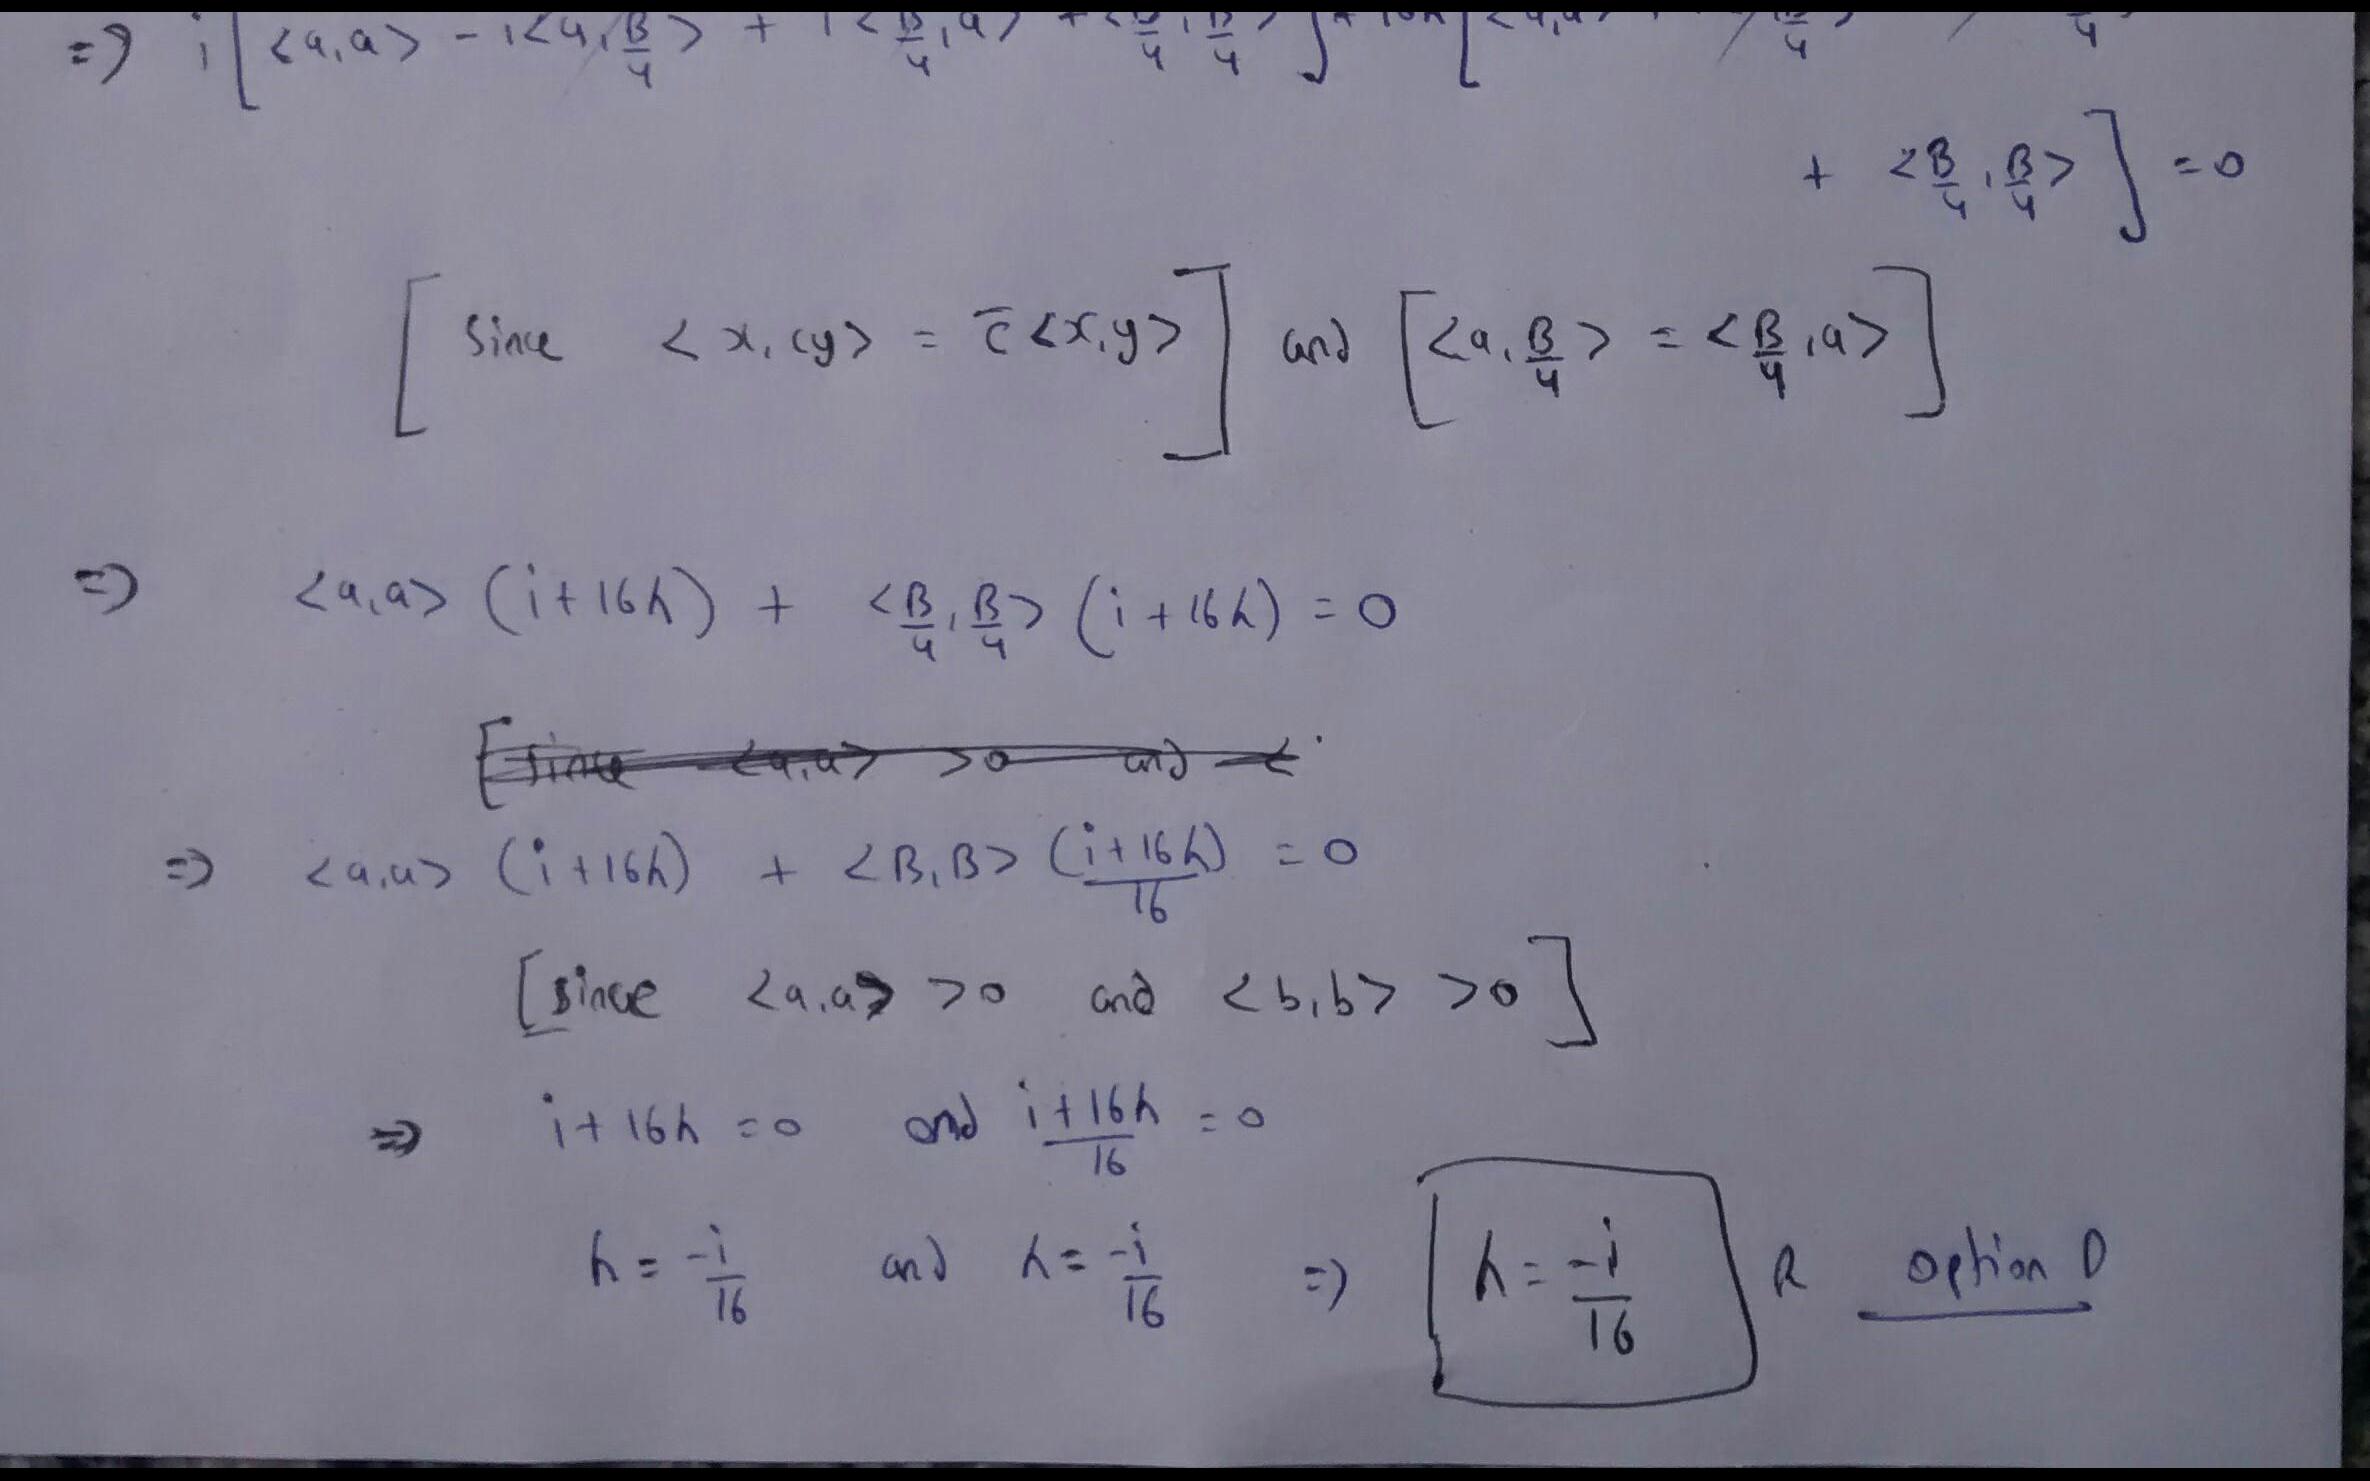 => i[<a,a> - i<a,B/4> + i<B/4,a> + <B/4,B/4>] + 16h[<a,a>
+ <B/4,B/4>] =0
[Since <x,cy> = c̄<x,y>] and [<a,B/4> = <B/4,a>]
=> <a,a> (i+16h) + <B/4,B/4> (i+16h) = 0
[Since <a,a> >0 and <
=> <a,a> (i+16h) + <B,B> (i+16h)/16 = 0
[Since <a,a> >0 and <b,b> >0]
=> i+16h =0 and (i+16h)/16 =0
h = -i/16 and h = -i/16 => h = -i/16 R option D